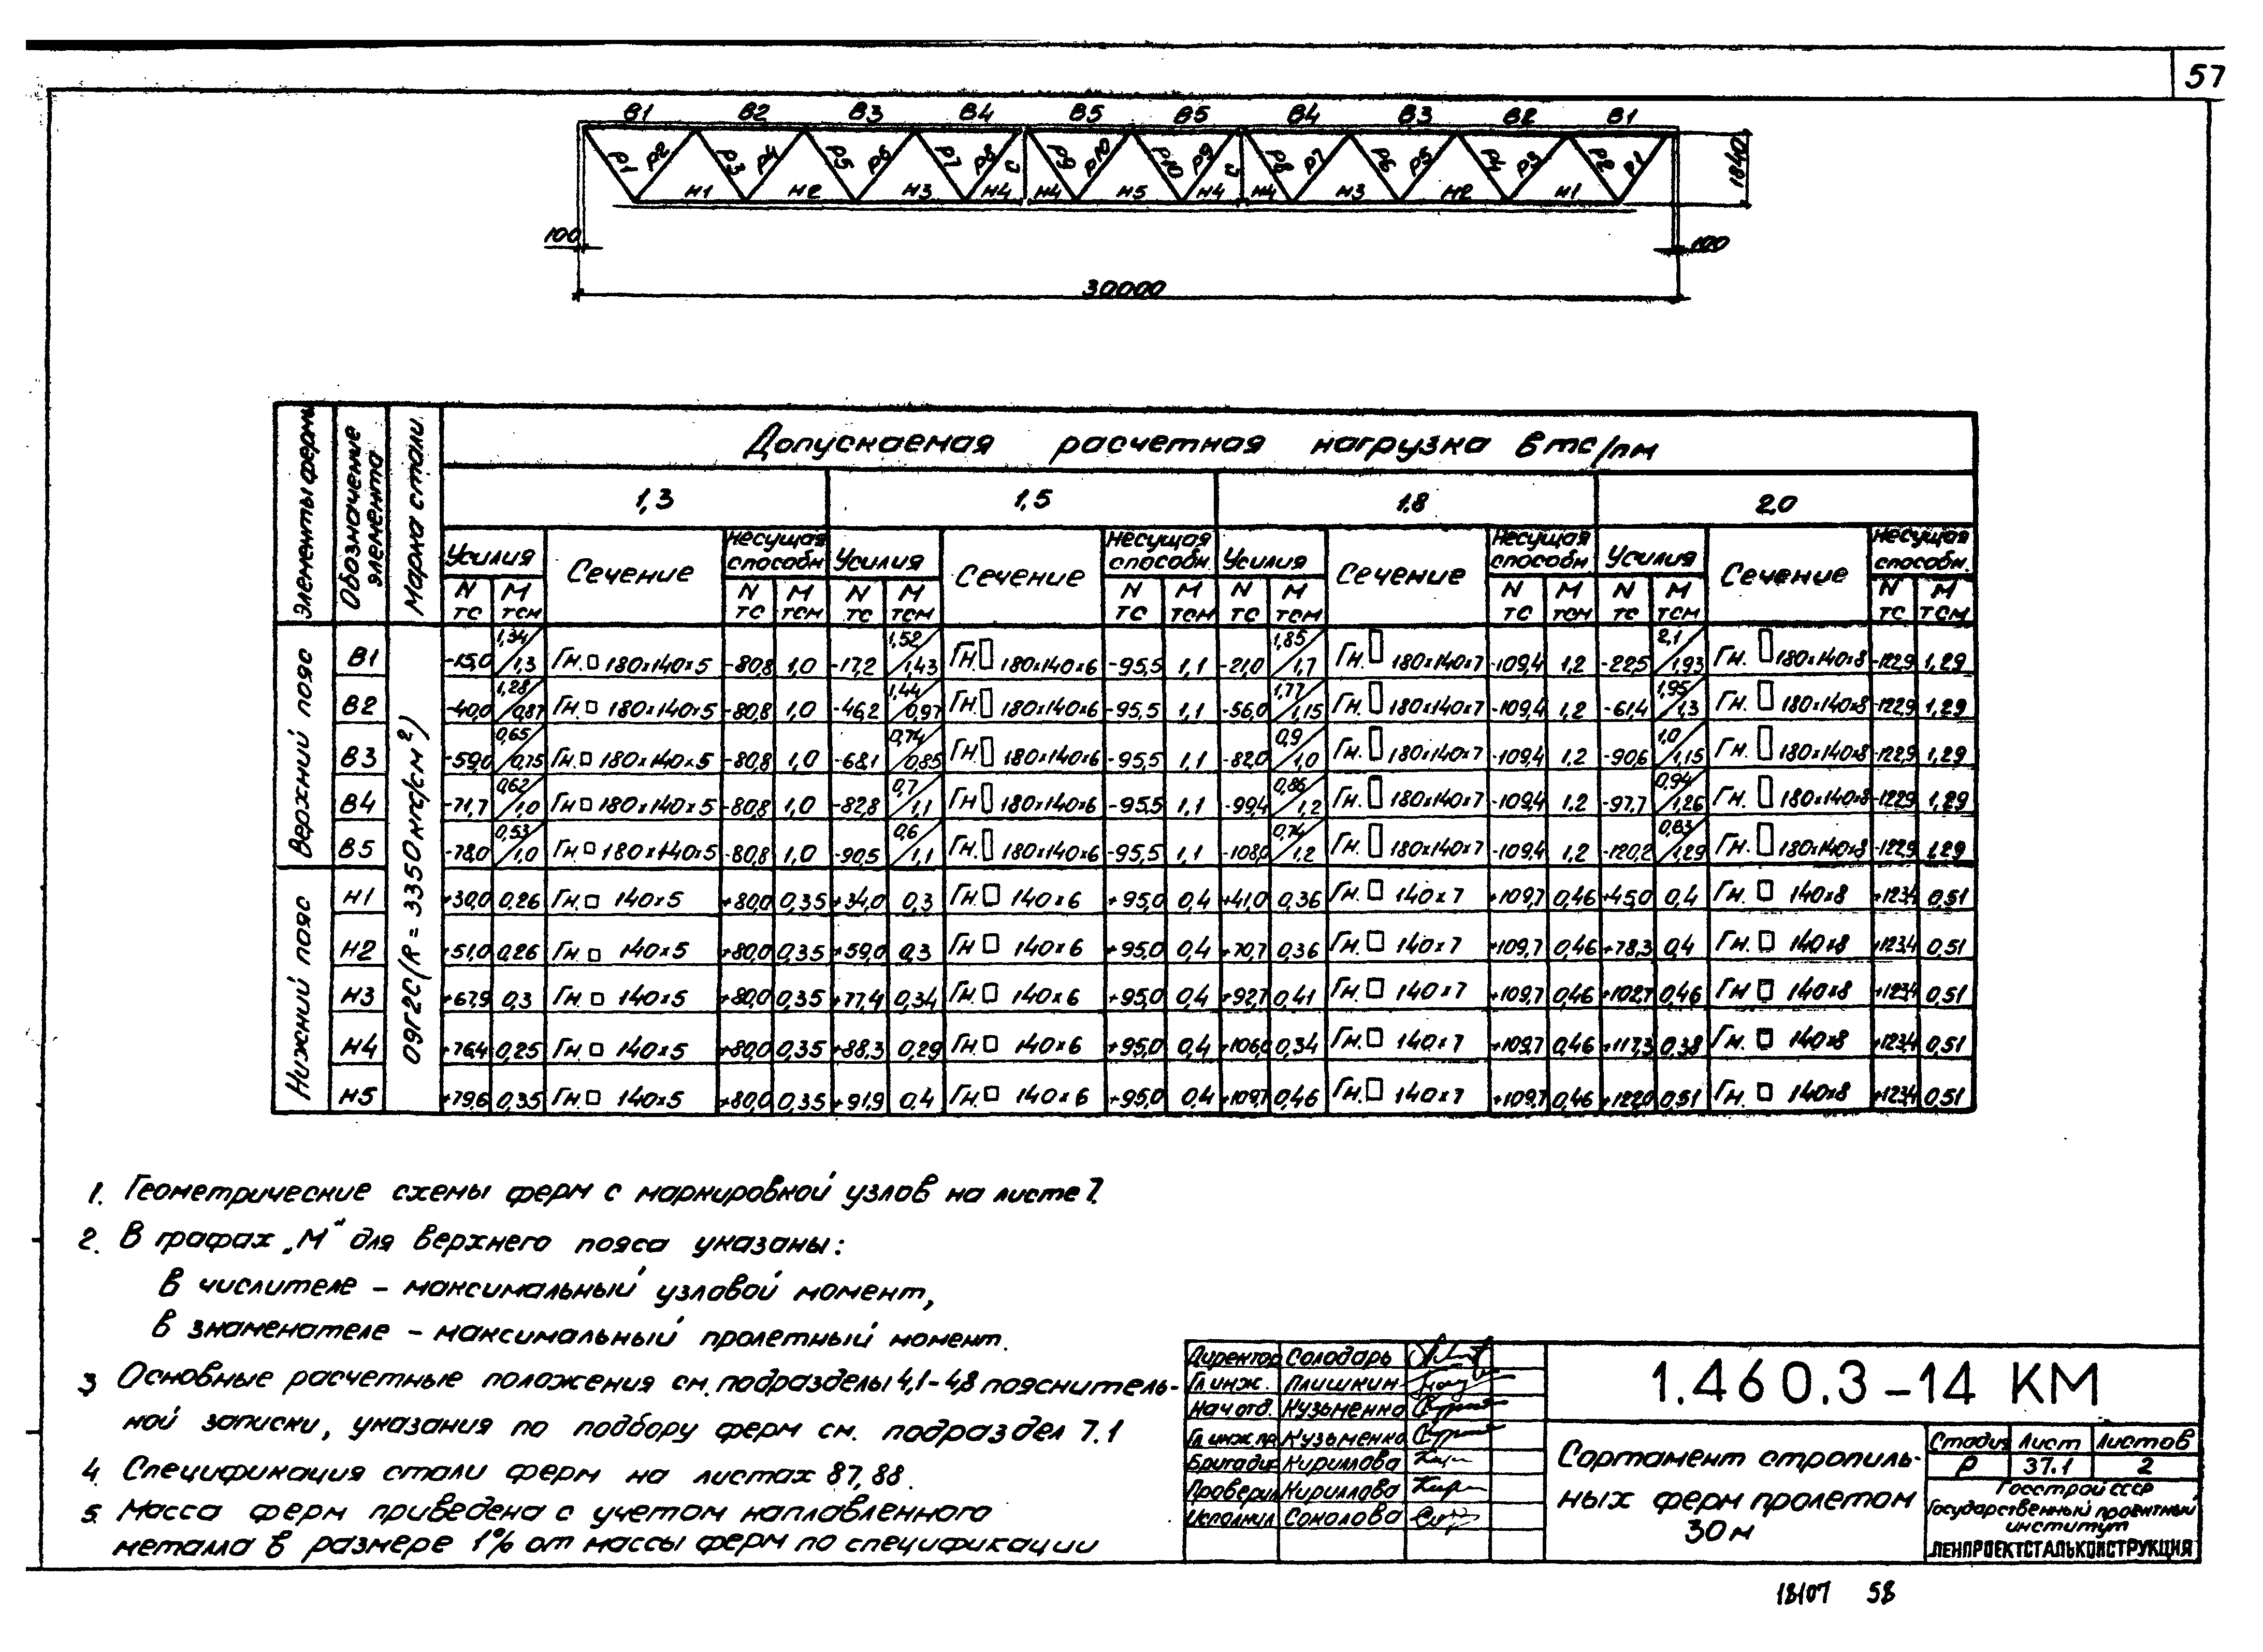 57
В1 В2 В3 В4 В5 В5 В4 В3 В2 В1
Р1 Р2 Р3 Р4 Р5 Р6 Р7 Р8 С Р9 Р10 Р10 Р9 С Р8 Р7 Р6 Р5 Р4 Р3 Р2 Р1
Н1 Н2 Н3 Н4 Н4 Н5 Н4 Н4 Н3 Н2 Н1
1840
100
100
30000
Элементы фермы
Обозначение элемента
Марка стали
Допускаемая расчетная нагрузка в тс/пм
1,3 1,5 1,8 2,0
Усилия Сечение Несущая способн. Усилия Сечение Несущая способн. Усилия Сечение Несущая способн. Усилия Сечение Несущая способн.
N тс М тсм N тс М тсм N тс М тсм N тс М тсм N тс М тсм N тс М тсм N тс М тсм N тс М тсм
Верхний пояс
09Г2С (R = 3350 кгс/см²)
В1 -15,0 1,34/1,3 Гн. □ 180×140×5 -80,8 1,0 -17,2 1,52/1,43 Гн. 180×140×6 -95,5 1,1 -21,0 1,85/1,7 Гн. 180×140×7 -109,4 1,2 -22,5 2,1/1,93 Гн. 180×140×8 -122,9 1,29
В2 -40,0 1,28/0,87 Гн. □ 180×140×5 -80,8 1,0 -46,2 1,44/0,97 Гн. 180×140×6 -95,5 1,1 -56,0 1,77/1,15 Гн. 180×140×7 -109,4 1,2 -61,4 1,95/1,3 Гн. 180×140×8 -122,9 1,29
В3 -59,0 0,65/0,75 Гн. □ 180×140×5 -80,8 1,0 -68,1 0,74/0,85 Гн 180×140×6 -95,5 1,1 -82,0 0,9/1,0 Гн. 180×140×7 -109,4 1,2 -90,6 1,0/1,15 Гн. 180×140×8 -122,9 1,29
В4 -71,7 0,62/1,0 Гн □ 180×140×5 -80,8 1,0 -82,8 0,7/1,1 Гн 180×140×6 -95,5 1,1 -99,4 0,86/1,2 Гн. 180×140×7 -109,4 1,2 -97,7 0,94/1,26 Гн. 180×140×8 -122,9 1,29
В5 -78,0 0,53/1,0 Гн. □ 180×140×5 -80,8 1,0 -90,5 0,6/1,1 Гн. 180×140×6 -95,5 1,1 -108,0 0,74/1,2 Гн. 180×140×7 -109,4 1,2 -120,2 0,83/1,29 Гн. 180×140×8 -122,9 1,29
Нижний пояс
Н1 +30,0 0,26 Гн. □ 140×5 +80,0 0,35 +34,0 0,3 Гн. □ 140×6 +95,0 0,4 +41,0 0,36 Гн. □ 140×7 +109,7 0,46 +45,0 0,4 Гн. □ 140×8 +123,4 0,51
Н2 +51,0 0,26 Гн. □ 140×5 +80,0 0,35 +59,0 0,3 Гн □ 140×6 +95,0 0,4 +70,7 0,36 Гн. □ 140×7 +109,7 0,46 +78,3 0,4 Гн. □ 140×8 +123,4 0,51
Н3 +67,9 0,3 Гн. □ 140×5 +80,0 0,35 +77,4 0,34 Гн. □ 140×6 +95,0 0,4 +92,7 0,41 Гн. □ 140×7 +109,7 0,46 +102,7 0,46 Гн □ 140×8 +123,4 0,51
Н4 +76,4 0,25 Гн. □ 140×5 +80,0 0,35 +88,3 0,29 Гн. □ 140×6 +95,0 0,4 +106,0 0,34 Гн. □ 140×7 +109,7 0,46 +117,3 0,38 Гн. □ 140×8 +123,4 0,51
Н5 +79,6 0,35 Гн. □ 140×5 +80,0 0,35 +91,9 0,4 Гн. □ 140×6 +95,0 0,4 +109,7 0,46 Гн. □ 140×7 +109,7 0,46 +122,0 0,51 Гн. □ 140×8 +123,4 0,51
1. Геометрические схемы ферм с маркировкой узлов на листе 7.
2. В графах „М" для верхнего пояса указаны:
в числителе – максимальный узловой момент,
в знаменателе – максимальный пролетный момент.
3 Основные расчетные положения см. подразделы 4,1–4,8 пояснитель-
ной записки, указания по подбору ферм см. подраздел 7.1
4. Спецификация стали ферм на листах 87,88.
5. Масса ферм приведена с учетом наплавленного
металла в размере 1% от массы ферм по спецификации
Директор Солодарь
Гл. инж. Плишкин
Нач отд. Кузьменко
Гл. инж. пр. Кузьменко
Бригадир Кириллова
Проверил Кириллова
Исполнил Соколова
1.460.3-14 КМ
Сортамент стропиль-
ных ферм пролетом
30м
Стадия Лист Листов
Р 37.1 2
Госстрой СССР
Государственный проектный
институт
ЛЕНПРОЕКТСТАЛЬКОНСТРУКЦИЯ
18107 58